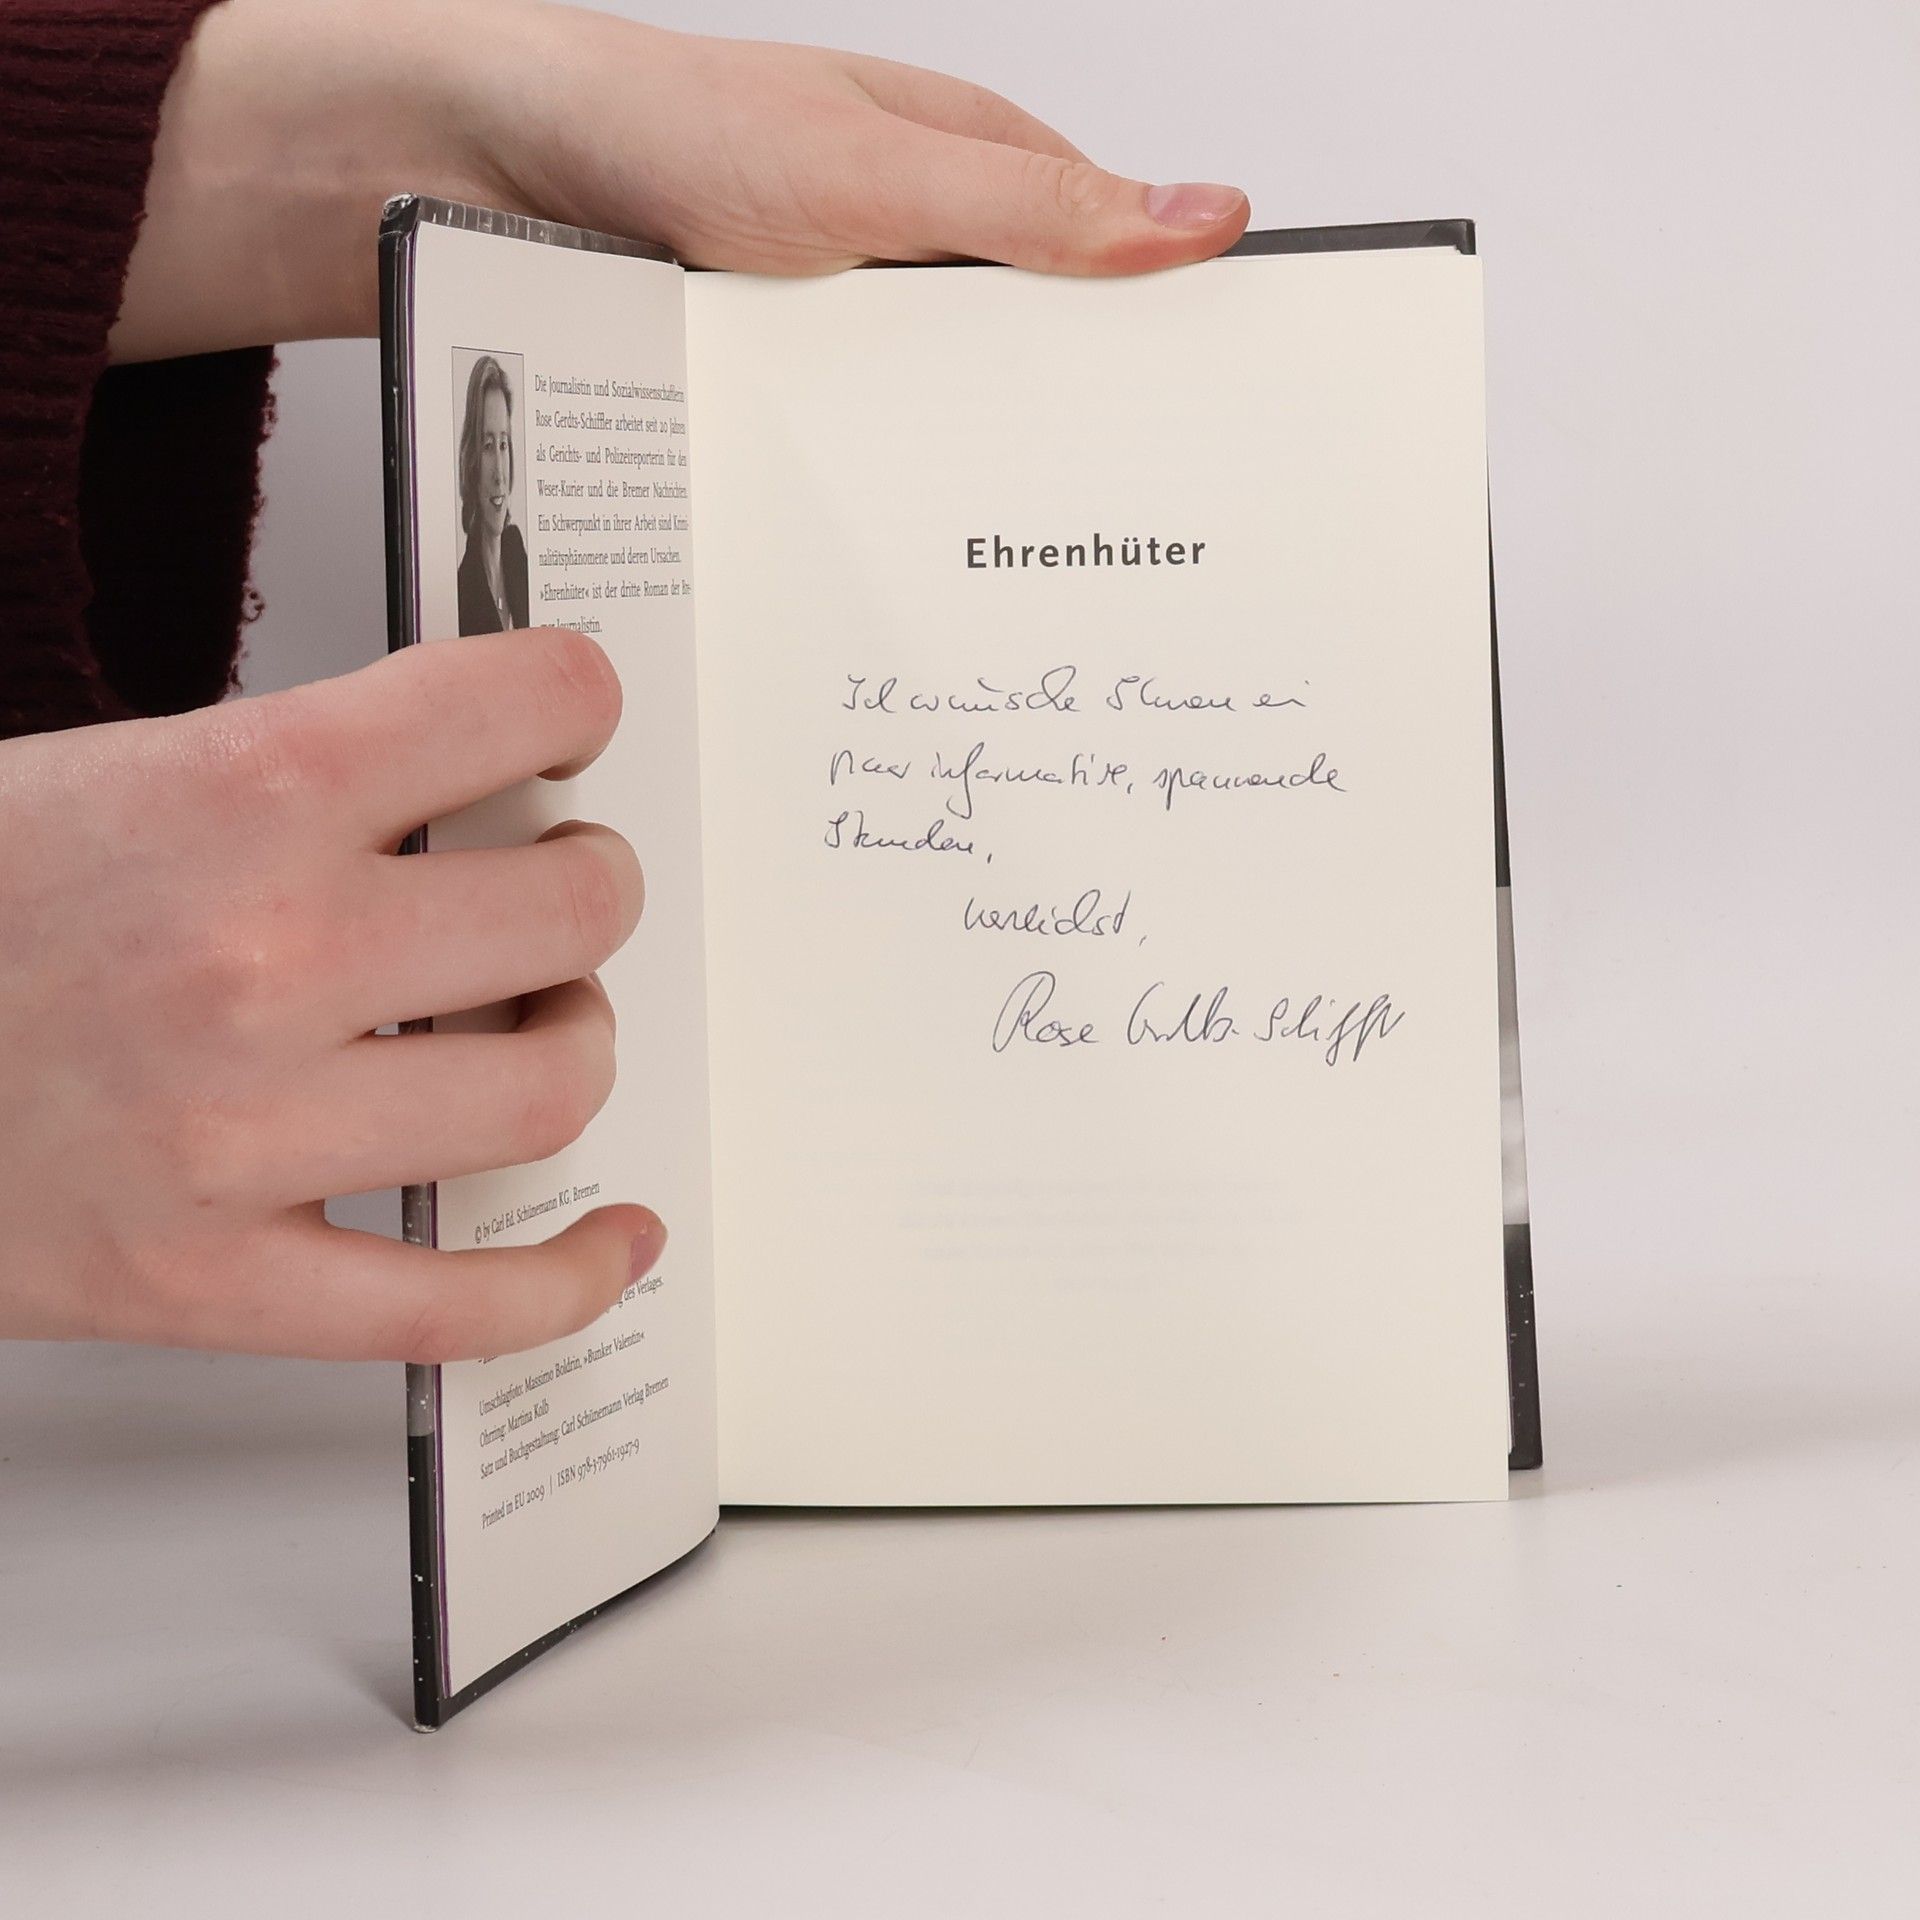 Die Journalistin und Sozialwissenschaftlerin
Rose Gerdts-Schiffler arbeitet seit 20 Jahren
als Gerichts- und Polizeireporterin für den
Weser-Kurier und die Bremer Nachrichten.
Ein Schwerpunkt in ihrer Arbeit sind Krimi-
nalitätsphänomene und deren Ursachen.
»Ehrenhüter« ist der dritte Roman der Bre-
mer Journalistin.
© by Carl Ed. Schünemann KG, Bremen
des Verlages.
Umschlagfoto: Massimo Boldrin, »Bunker Valentin«
Ohrring: Martina Kolb
Satz und Buchgestaltung: Carl Schünemann Verlag Bremen
Printed in EU 2009 | ISBN 978-3-7961-1927-9
Ehrenhüter
Ich wünsche Ihnen ein
paar informative, spannende
Stunden,
herzlichst,
Rose Gerdts-Schiffler